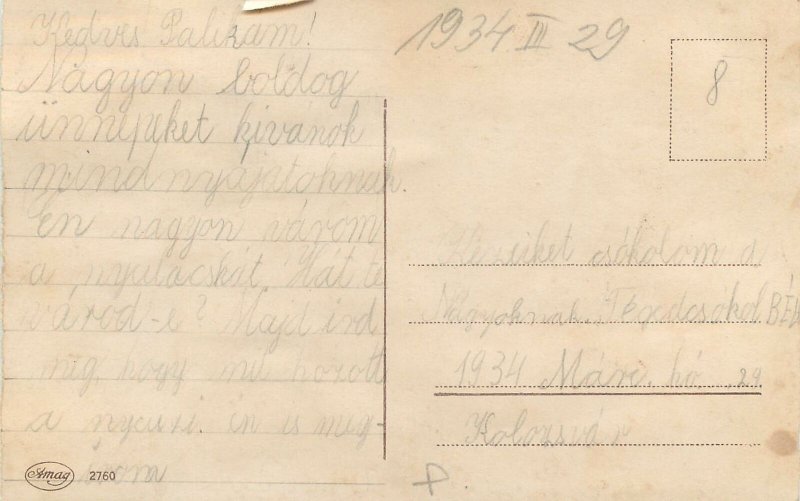 Kedves Palikám!
Nagyon boldog
ünnepeket kívánok
mindnyájatoknak.
Én nagyon várom
a nyulacskát. Hát te
várod-e? Majd írd
meg, hogy mit hozott
a nyuszi. én is meg-
írom
1934 III 29
8
csókolom a
Nagyoknak. Téged csókol BÉL
1934 Márc. hó 29
Kolozsvár
Amag 2760